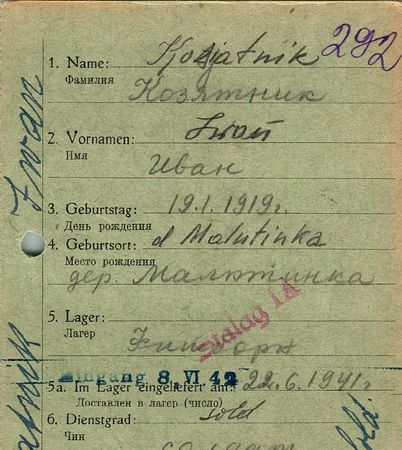 292
1. Name: Kosjatnik
Фамилия
Козятник
2. Vornamen: Iwan
Имя
Иван
3. Geburtstag: 19.1.1919г.
День рождения
4. Geburtsort: d Malutinka
Место рождения
дер. Малютинка
Stalag IA
5. Lager:
Лагер
Eingang 8. VI. 42
5a. Im Lager eingeliefert am: 22.6.1941г.
Доставлен в лагер (число)
6. Dienstgrad: sold
Чин
солдат
Iwan